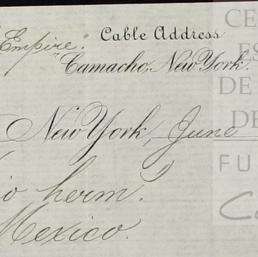 Empire." Cable Address
"Camacho, New York.
New York, June
io herm.
Mexico.
CE
ES
DE
DE
FU
C